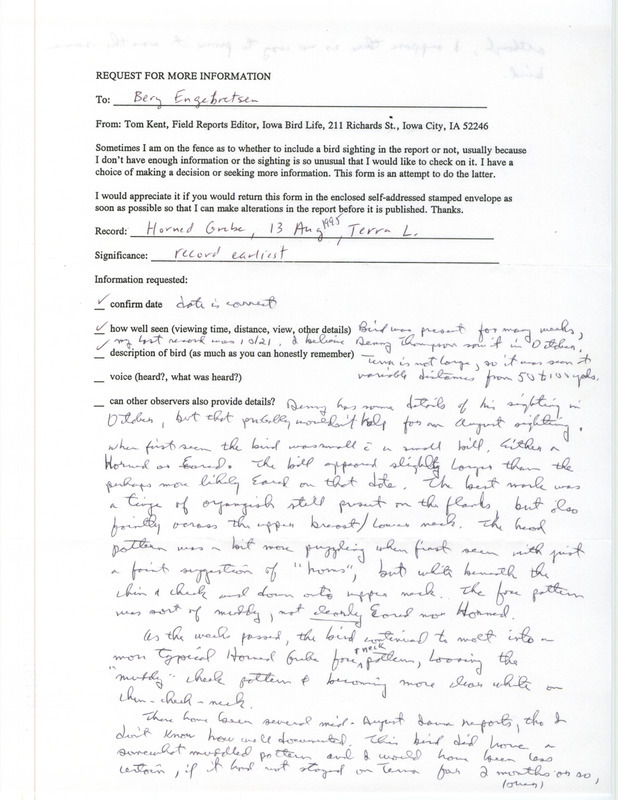 REQUEST FOR MORE INFORMATION
To: Bery Engebretsen
From: Tom Kent, Field Reports Editor, Iowa Bird Life, 211 Richards St., Iowa City, IA 52246
Sometimes I am on the fence as to whether to include a bird sighting in the report or not, usually because
I don't have enough information or the sighting is so unusual that I would like to check on it. I have a
choice of making a decision or seeking more information. This form is an attempt to do the latter.
I would appreciate it if you would return this form in the enclosed self-addressed stamped envelope as
soon as possible so that I can make alterations in the report before it is published. Thanks.
Record: Horned Grebe, 13 Aug 1995, Terra L.
Significance: record earliest
Information requested:
✓ confirm date date is correct
✓ how well seen (viewing time, distance, view, other details) Bird was present for many weeks,
my last record was 10/21. I believe Denny Thompson saw it in October.
✓ description of bird (as much as you can honestly remember) Terra is not large, so it was seen at
voice (heard?, what was heard?) variable distances from 50 to 100 yds.
can other observers also provide details? Denny has some details of his sighting in
October, but that probably wouldn't help for an August sighting.
When first seen the bird was small c̄ a small bill, Either a
Horned or Eared. The bill appeared slightly larger than the
perhaps more likely Eared on that date. The best mark was
a tinge of orangish still present on the flanks, but also
faintly across the upper breast/lower neck. The head
pattern was a bit more puzzling when first seen with just
a faint suggestion of "horns", but white beneath the
chin & cheek and down onto upper neck. The face pattern
was sort of muddy, not clearly Eared nor Horned.
As the weeks passed, the bird continued to molt into a
more typical Horned Grebe face & neck pattern, loosing the
"muddy" cheek pattern & becoming more clear white on
chin-cheek-neck.
There have been several mid-August Iowa reports, tho I
don't know how well documented. This bird did have a
somewhat muddled pattern and I would have been less
certain, if it had not stayed on Terra for 2 months or so,
(over)